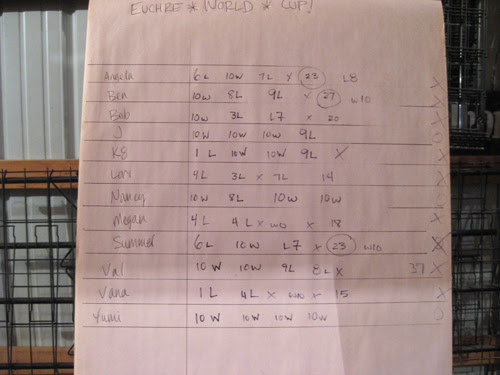 EUCHRE * WORLD * CUP!
Angela 6L 10W 7L x 23 L8 X
Ben 10W 8L 9L x 27 W10 X
Bob 10W 3L L7 x 20 X
J 10W 10W 10W 9L O
K8 1L 10W 10W 9L X X
Lori 4L 3L x 7L 14 X
Nancy 10W 8L 10W 10W
Megan 4L 4L x W10 x 18 X
Summer 6L 10W L7 x 23 W10 X
Val 10W 10W 9L 8L X 37 X
Vana 1L 4L x W10 x 15 X
Yumi 10W 10W 10W 10W O